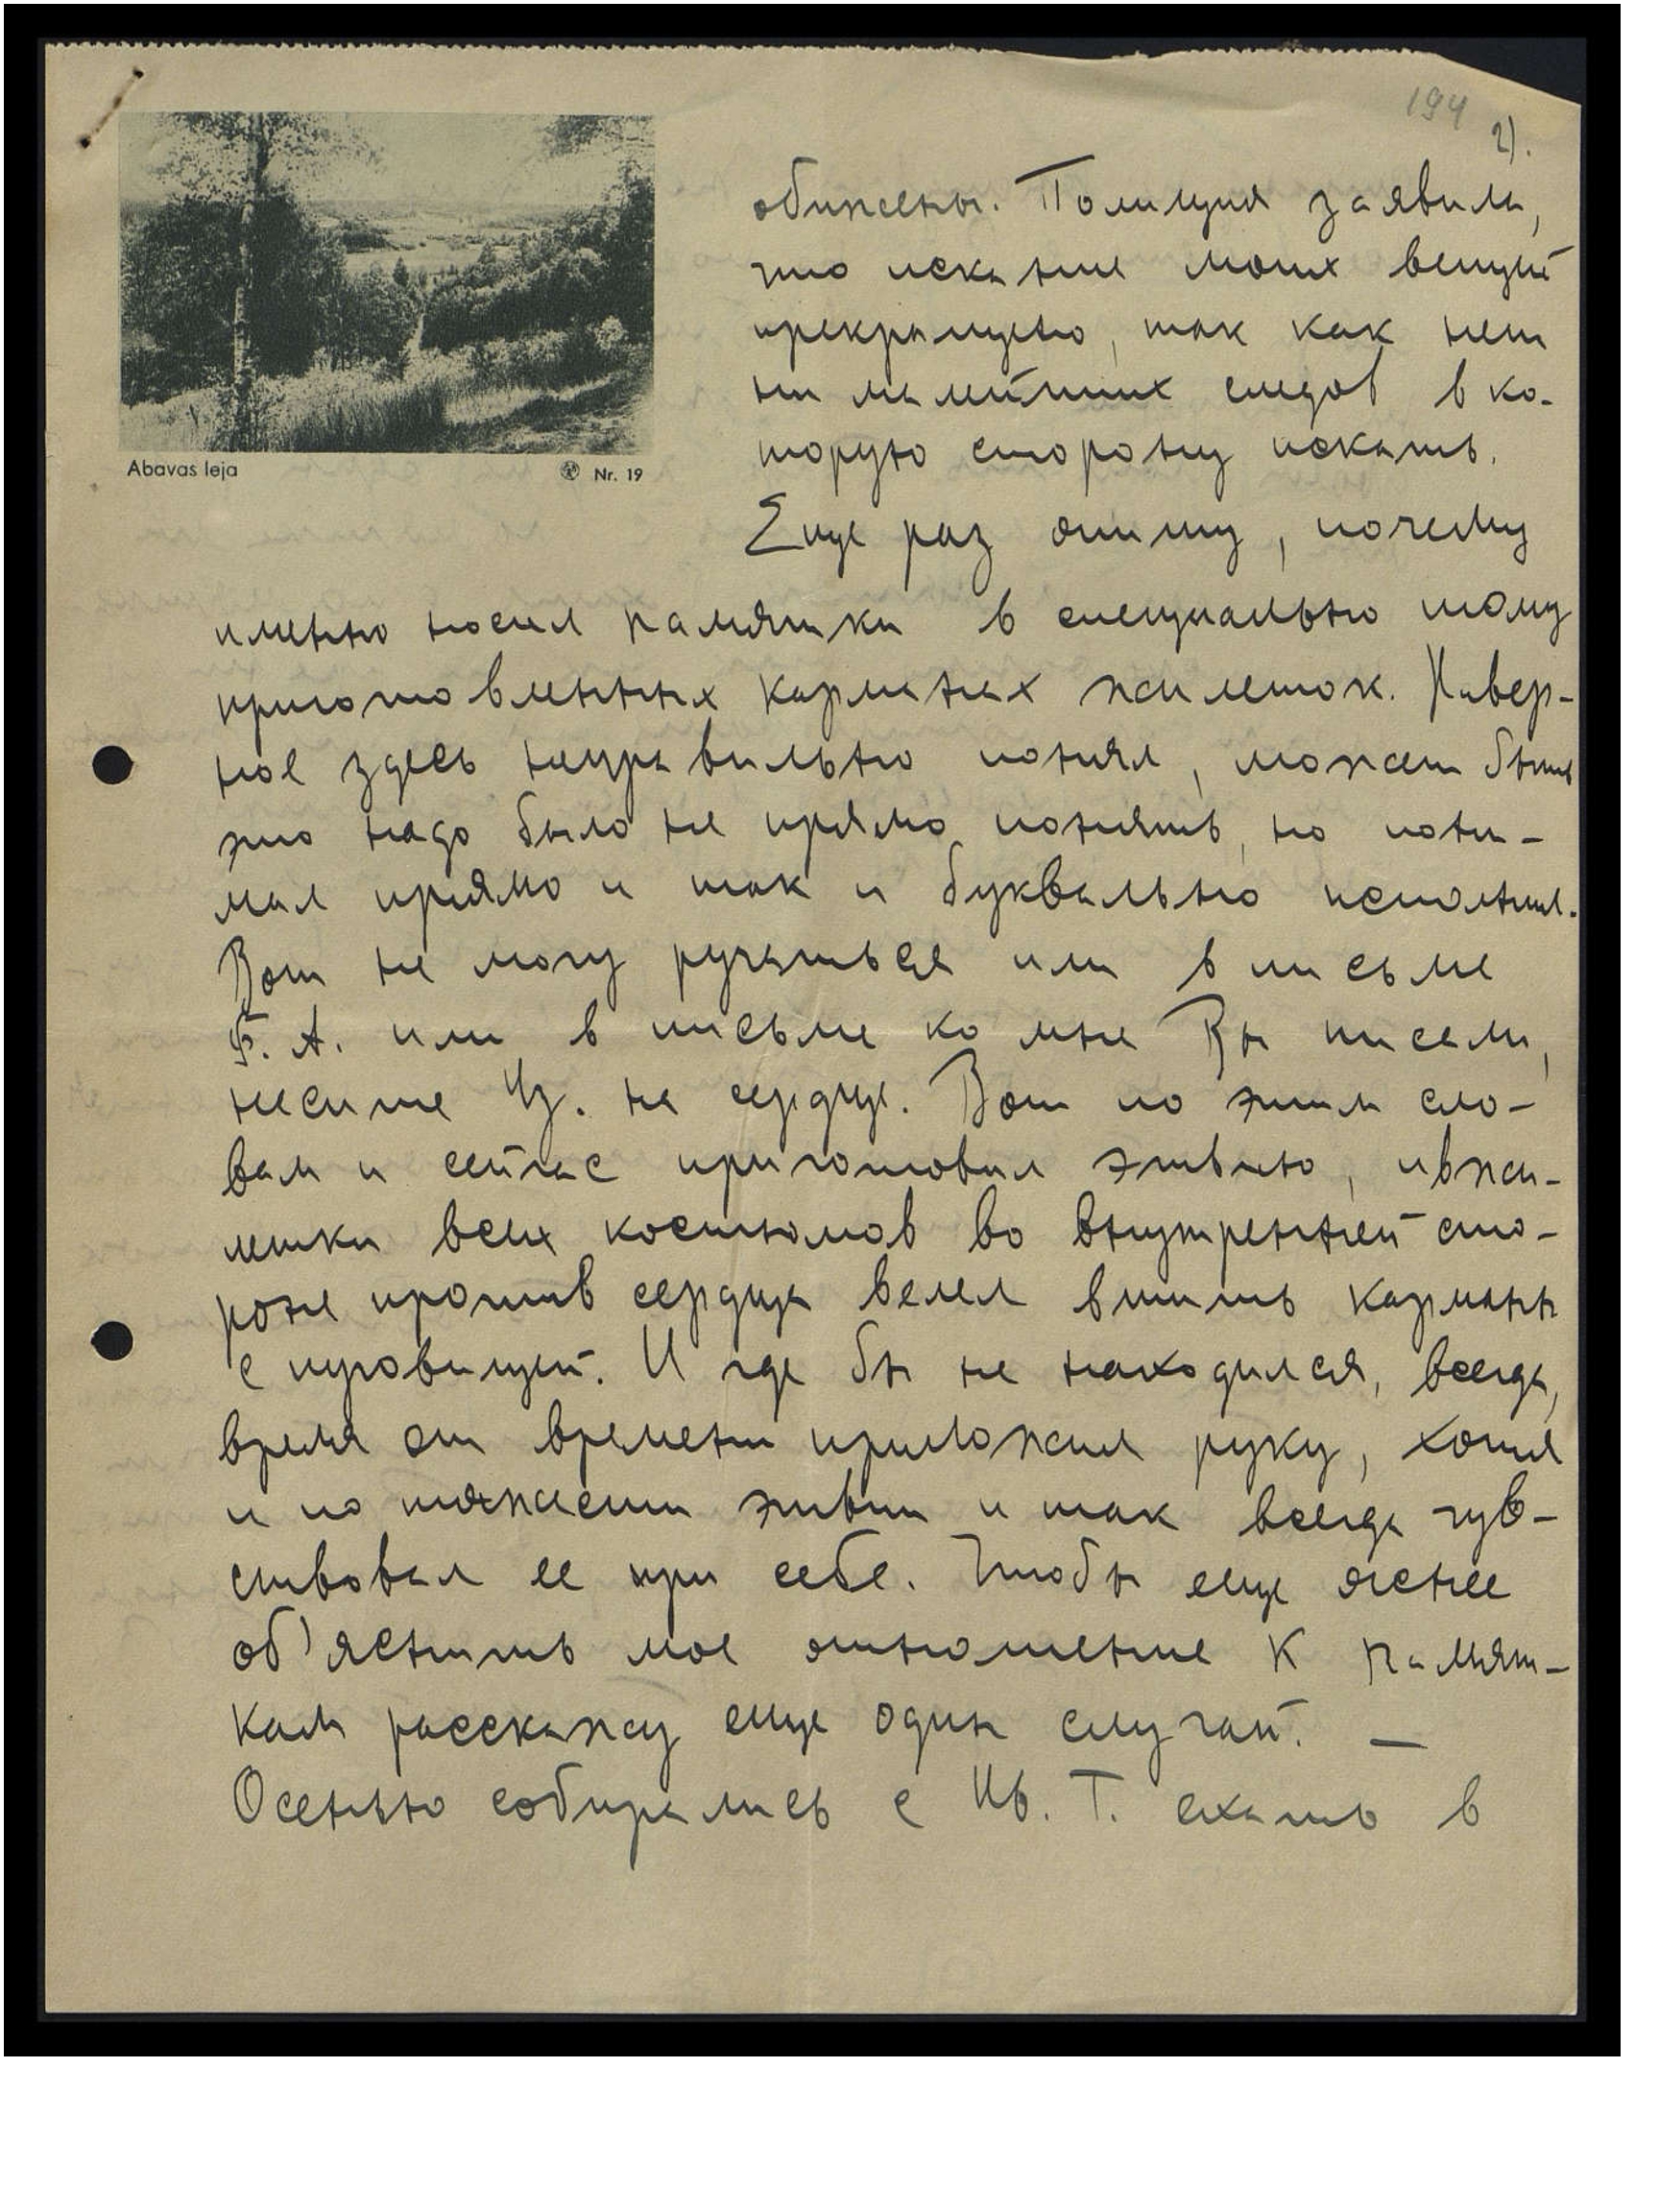 194
2).
обижены. Полиция заявила,
что искание моих вещей
прекращено, так как нет
ни малейших следов в ко-
торую сторону искать.
Abavas leja Nr. 19
Еще раз опишу, почему
именно носил памятки в специально тому
приготовленных карманах жилеток. Навер-
ное здесь неправильно понял, может быть
это надо было не прямо понять, но пони-
мал прямо и так и буквально исполнил.
Вот не могу ручаться или в письме
Ф. А. или в письме ко мне Вы писали,
несите Из. на сердце. Вот по этим сло-
вам и сейчас приготовил этвию, и в жи-
летки всех костюмов во внутренней сто-
роне против сердца велел вшить карманы
с пуговицей. И где бы не находился, всегда,
время от времени приложил руку, хотя
и по тяжести этви и так всегда чув-
ствовал ее при себе. Чтобы еще яснее
об'яснить мое отношение к памят-
кам расскажу еще один случай. —
Осенью собирались с Ив. Г. ехать в